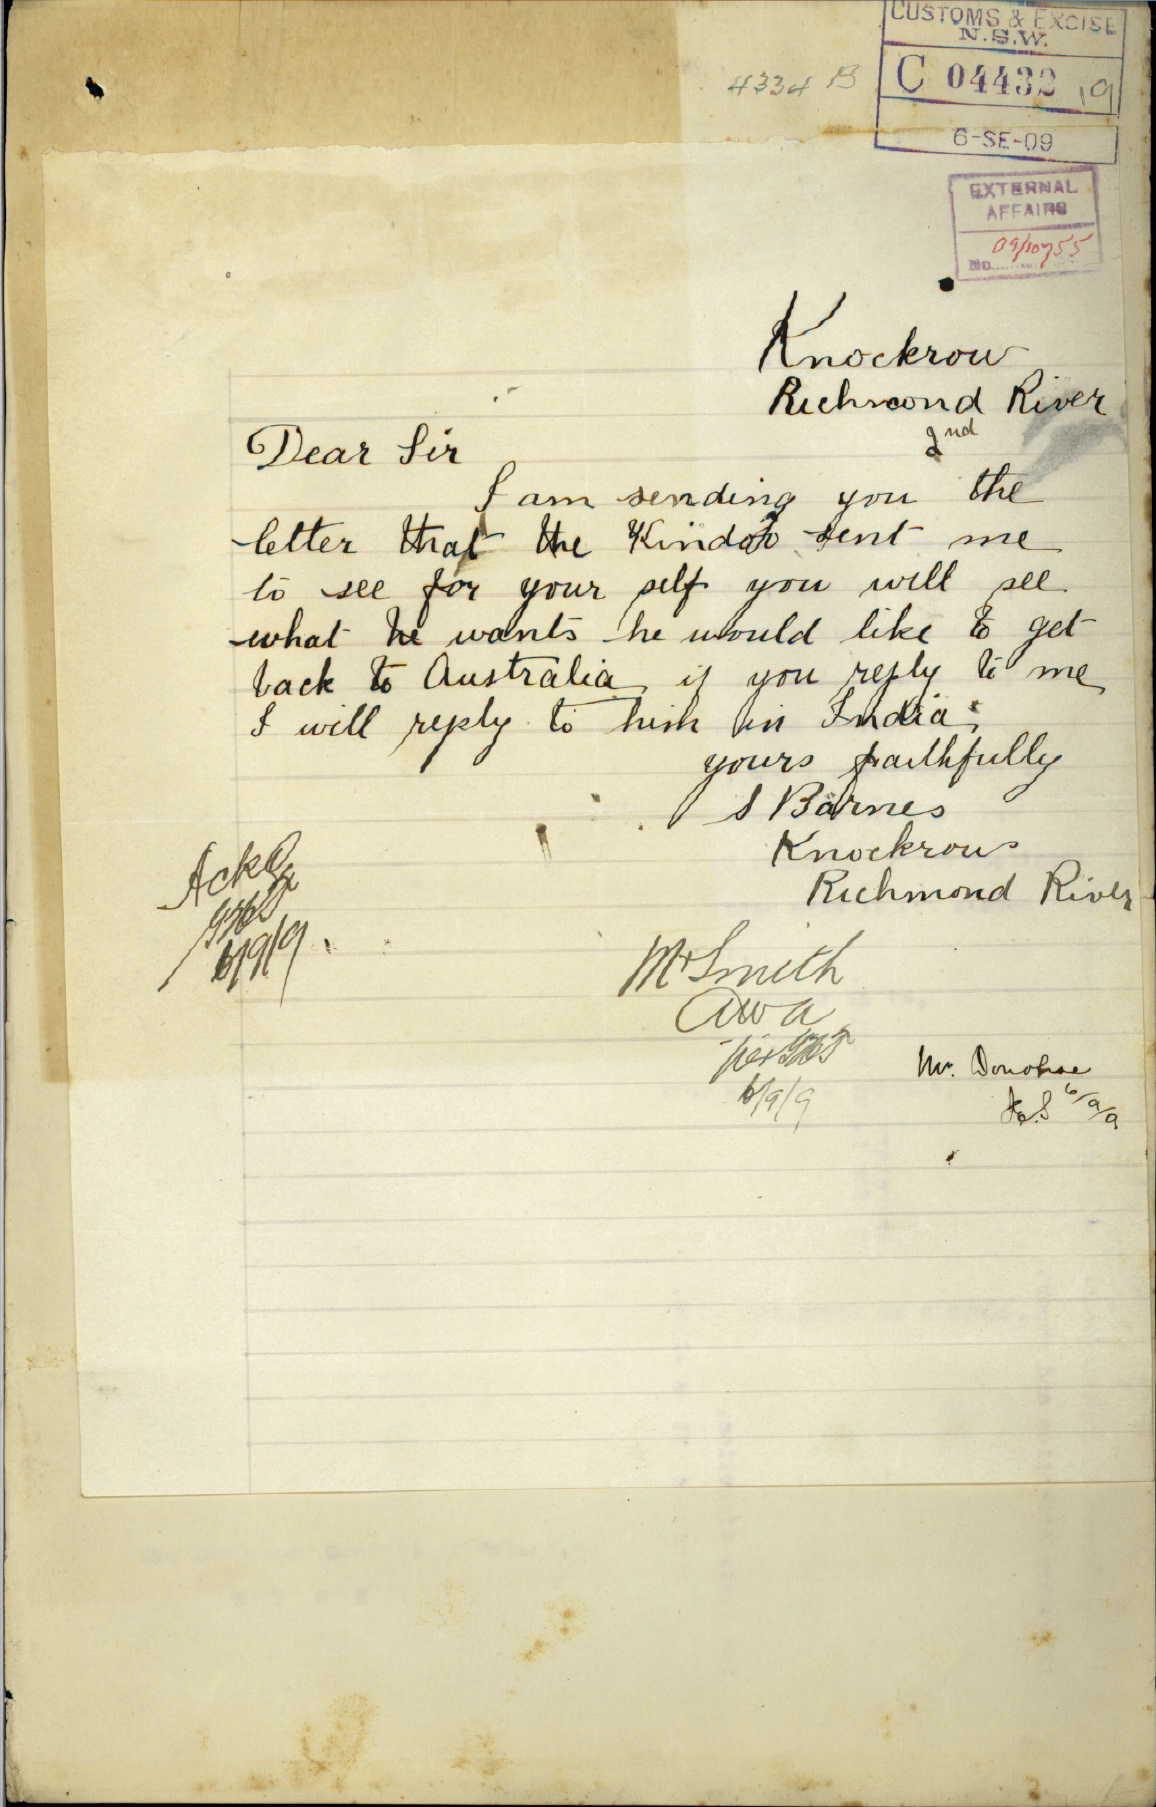 CUSTOMS & EXCISE
N.S.W.
4334 B
C 04432 19
6-SE-09
EXTERNAL
AFFAIRS
09/10755
No
Knockrow
Richmond River
2nd
Dear Sir
I am sending you the
letter that the Kindoo sent me
to see for your self you will see
what he wants he would like to get
back to Australia if you reply to me
I will reply to him in India
yours faithfully
S Barnes
Knockrow
Richmond River
Ackd
6/9/9
Mr Smith
awa
6/9/9
Mr. Donohoe
6/9/9